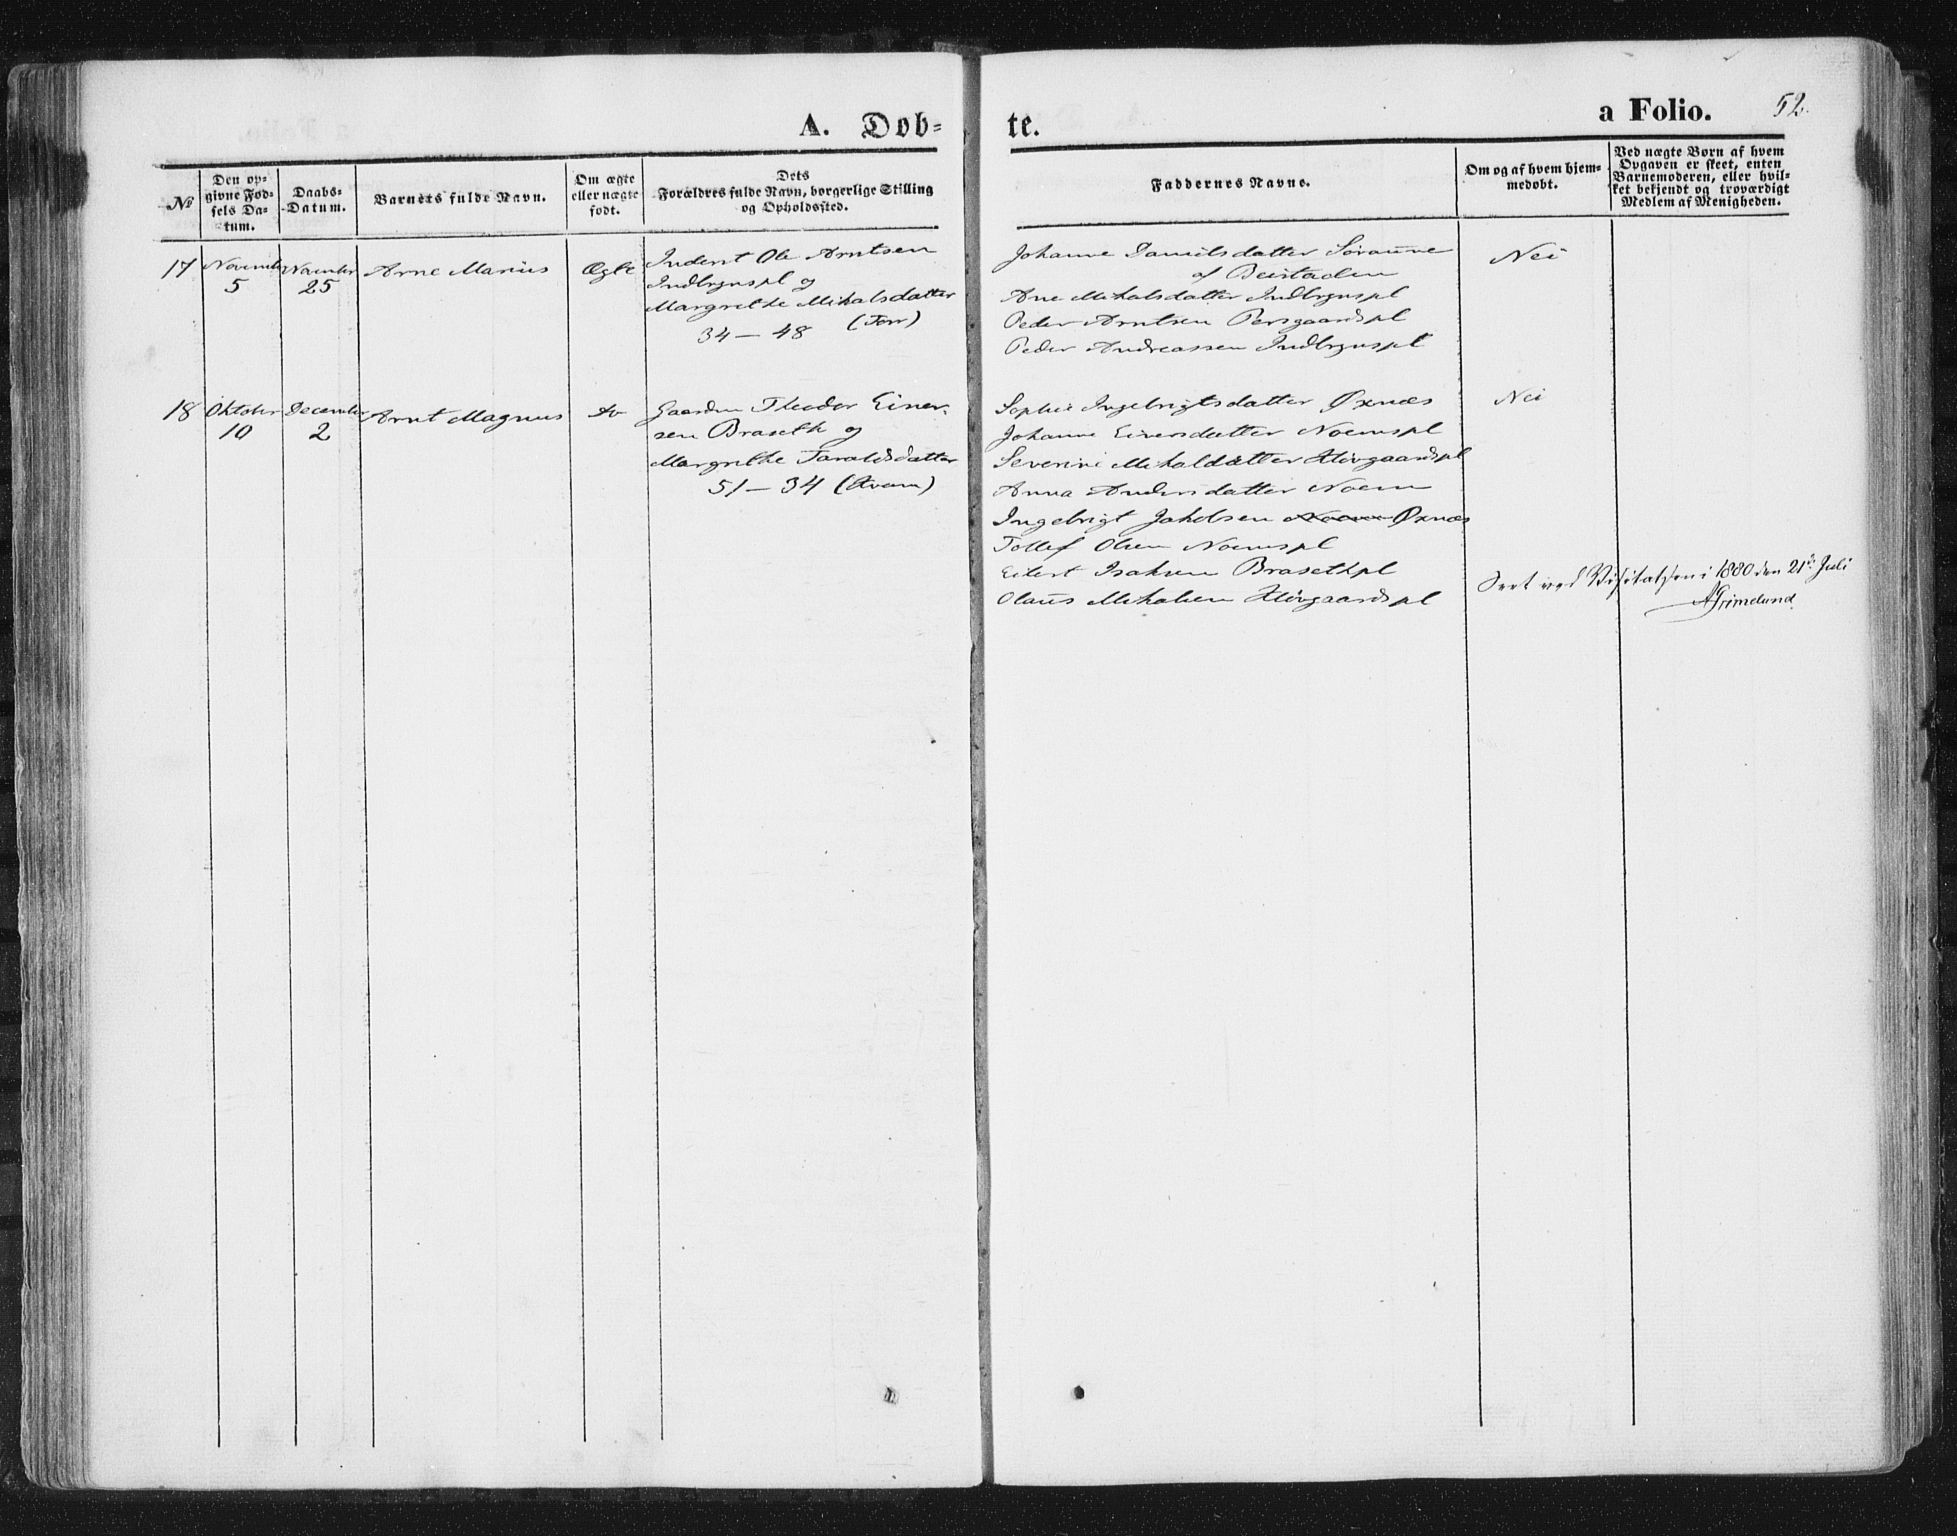 A. Døb-
te.
a Folio.
52.
№
Den op-
givne Fød-
sels Da-
tum.
Daabs-
Datum.
Barnets fulde Navn.
Om ægte
eller uægte
født.
Dets
Forældres fulde Navn, borgerlige Stilling
og Opholdssted.
Faddernes Navne.
Om og af hvem hjem-
medøbt.
Ved uægte Børn af hvem
Opgaven er skeet, enten
Barnemoderen, eller hvil-
ket bekjendt og troværdigt
Medlem af Menigheden.
17
November
5
November
25
Arne Marius
Ægte
Inderst Ole Arntsen
Indbrynspl og
Margrethe Mikalsdatter
34 — 48
Johanne Danielsdatter
af Beistaden
Ane Mikalsdatter Indbrynspl
Peder Arntsen Persgaardspl
Peder Andreassen Indbrynspl
Nei
18
Oktober
10
December
2
Arnt Magnus
Gaardm Theodor Einer-
sen Braseth og
Margrethe Taraldsdatter
51 — 34 (Kvam)
Sophie Ingebrigtsdatter Øxnæs
Johanne Einersdatter Noemspl
Severine Mikaldatter
Anna Andersdatter Noem
Ingebrigt Jakobsen Noem Øxnæs
Tollef Olsen Noemspl
Eilert Isaksen Brasethpl
Olaus Mikalsen
Nei
Seet ved Visitatsen i 1880 den 21de Juli
AGrimelund